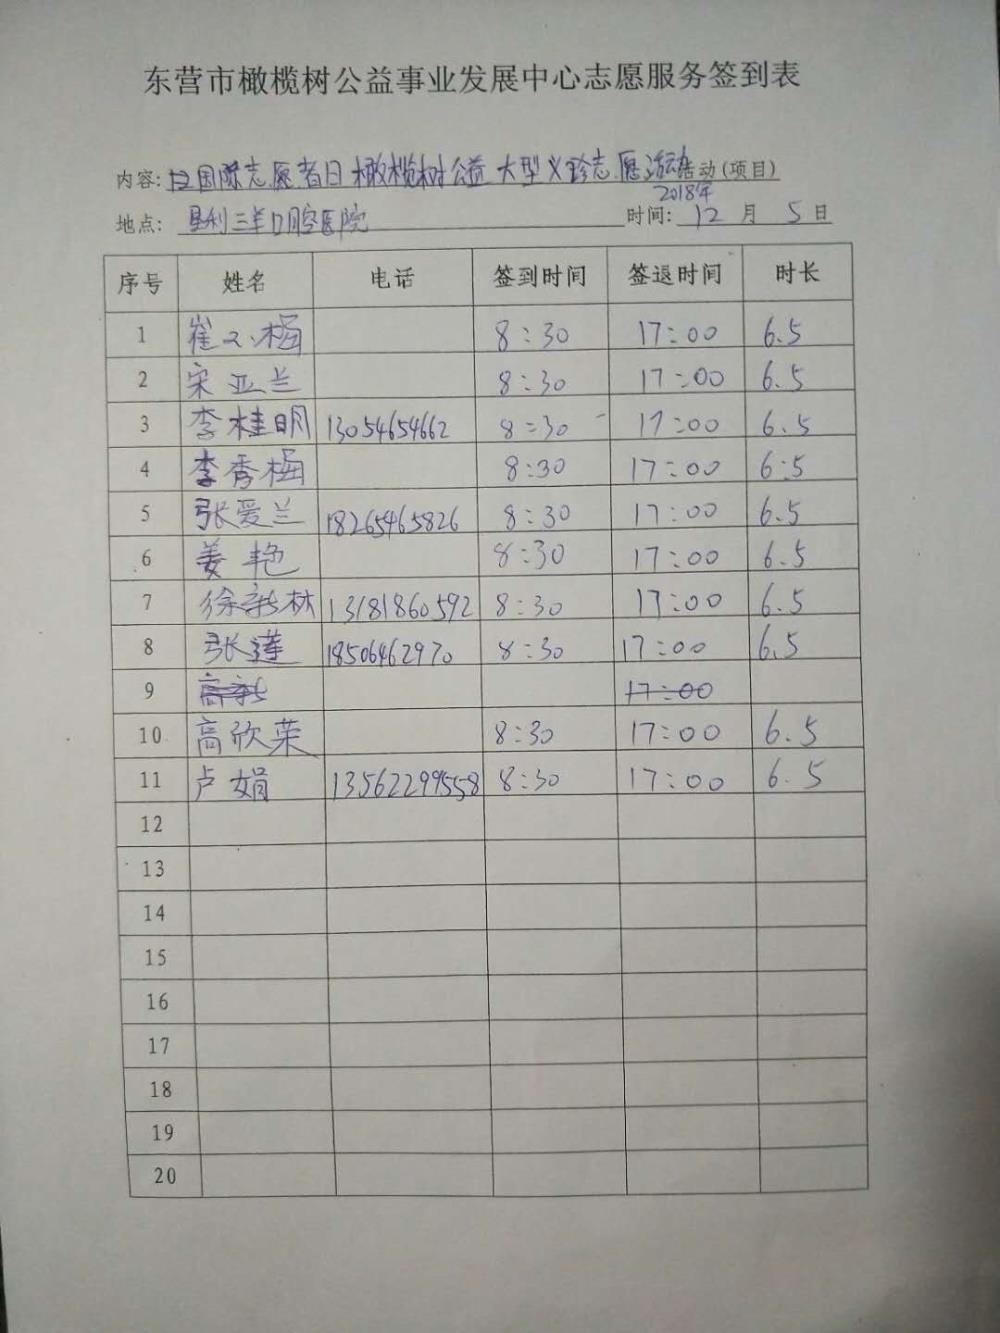 东营市橄榄树公益事业发展中心志愿服务签到表
内容: 国际志愿者日橄榄树公益大型义诊志愿活动(项目)
2018年
地点: 垦利三羊口腔医院 时间: 12 月 5 日
序号 姓名 电话 签到时间 签退时间 时长
1 崔 梅 8:30 17:00 6.5
2 宋亚兰 8:30 17:00 6.5
3 李桂明 13054654662 8:30 17:00 6.5
4 李秀梅 8:30 17:00 6.5
5 张爱兰 18265465826 8:30 17:00 6.5
6 姜艳 8:30 17:00 6.5
7 徐新林 13181860592 8:30 17:00 6.5
8 张莲 18506462970 8:30 17:00 6.5
9 高新 17:00
10 高欣荣 8:30 17:00 6.5
11 卢娟 13562299558 8:30 17:00 6.5
12
13
14
15
16
17
18
19
20